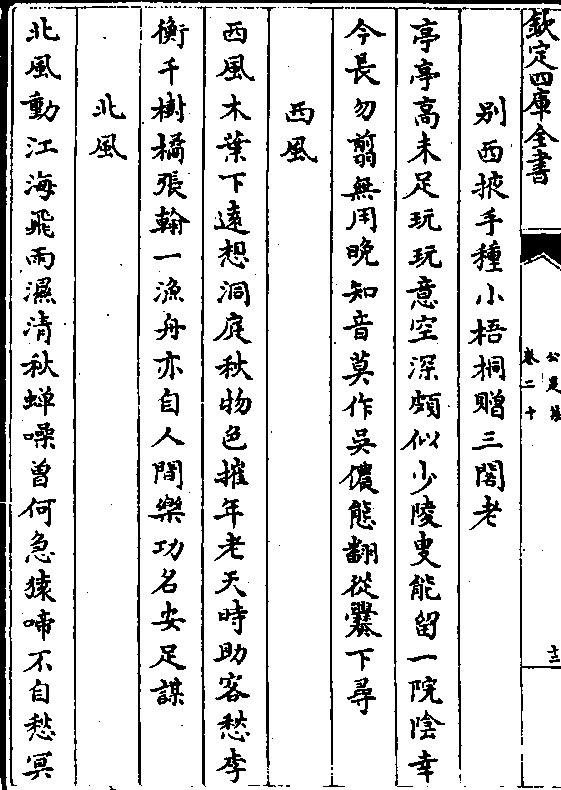 欽定四庫全書
公是集
卷二十
十三
別西掖手種小梧桐贈三閣老
亭亭高未足玩玩意空深頗似少陵叟能留一院陰幸
今長勿翦無用晚知音莫作吳儂態翻從爨下尋
西風
西風木葉下遠想洞庭秋物色摧年老天時助客愁李
衡千樹橘張翰一漁舟亦自人間樂功名安足謀
北風
北風動江海飛雨濕清秋蟬噪曾何急猿啼不自愁冥